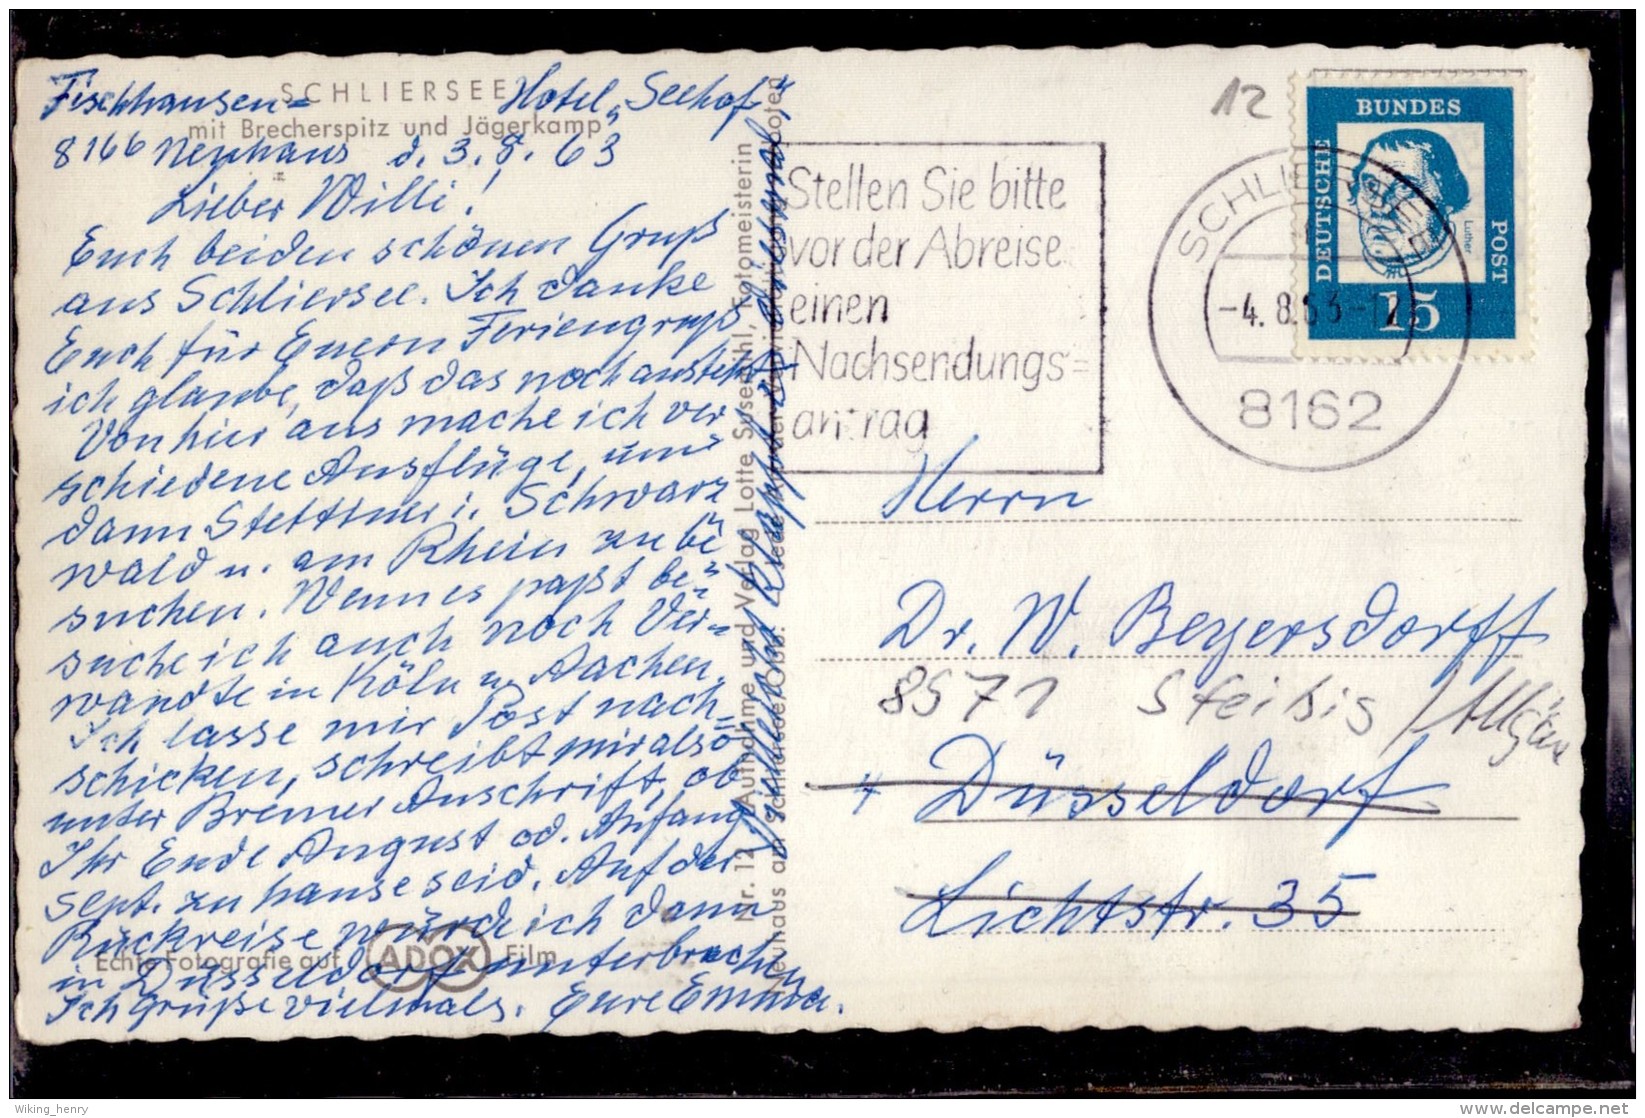 SCHLIERSEE
mit Brecherspitz und Jägerkamp
Fischhausen=Hotel „Seehof"
8166 Neuhaus d. 3.8.63
Lieber Willi!
Euch beiden schönen Gruß
aus Schliersee. Ich danke
Euch für Euern Feriengruß
ich glaube, daß das noch aussteht
Von hier aus mache ich ver
schiedene Ausflüge, um
dann Stettiner i. Schwarz
wald u. am Rhein zu be
suchen. Wenn es paßt be=
suche ich auch noch Ver=
wandte in Köln u. Aachen.
Ich lasse mir Post nach=
schicken, schreibt mir also
unter Bremer Anschrift, ob
Ihr Ende August od. Anfang
Sept. zu hause seid. Auf der
Rückreise würde ich dann
in Düsseldorf unterbrechen
Ich grüße vielmals. Eure Emma.
Vielleicht klappt es diesmal
Echte Fotografie auf ADOX Film
Nr. 12 Aufnahme und Verlag Lotte Susemihl, Fotomeisterin
Neuhaus am Schliersee/Obb.
Stellen Sie bitte
vor der Abreise
einen
Nachsendungs=
antrag
12
SCHLIERSEE
-4.8.63-17
8162
DEUTSCHE
BUNDES
POST
Luther
15
Herrn
Dr. W. Beyersdorff
8971 Steibis / Allgäu
4 Düsseldorf
Lichtstr. 35
Wiking_henry
delcampe.net